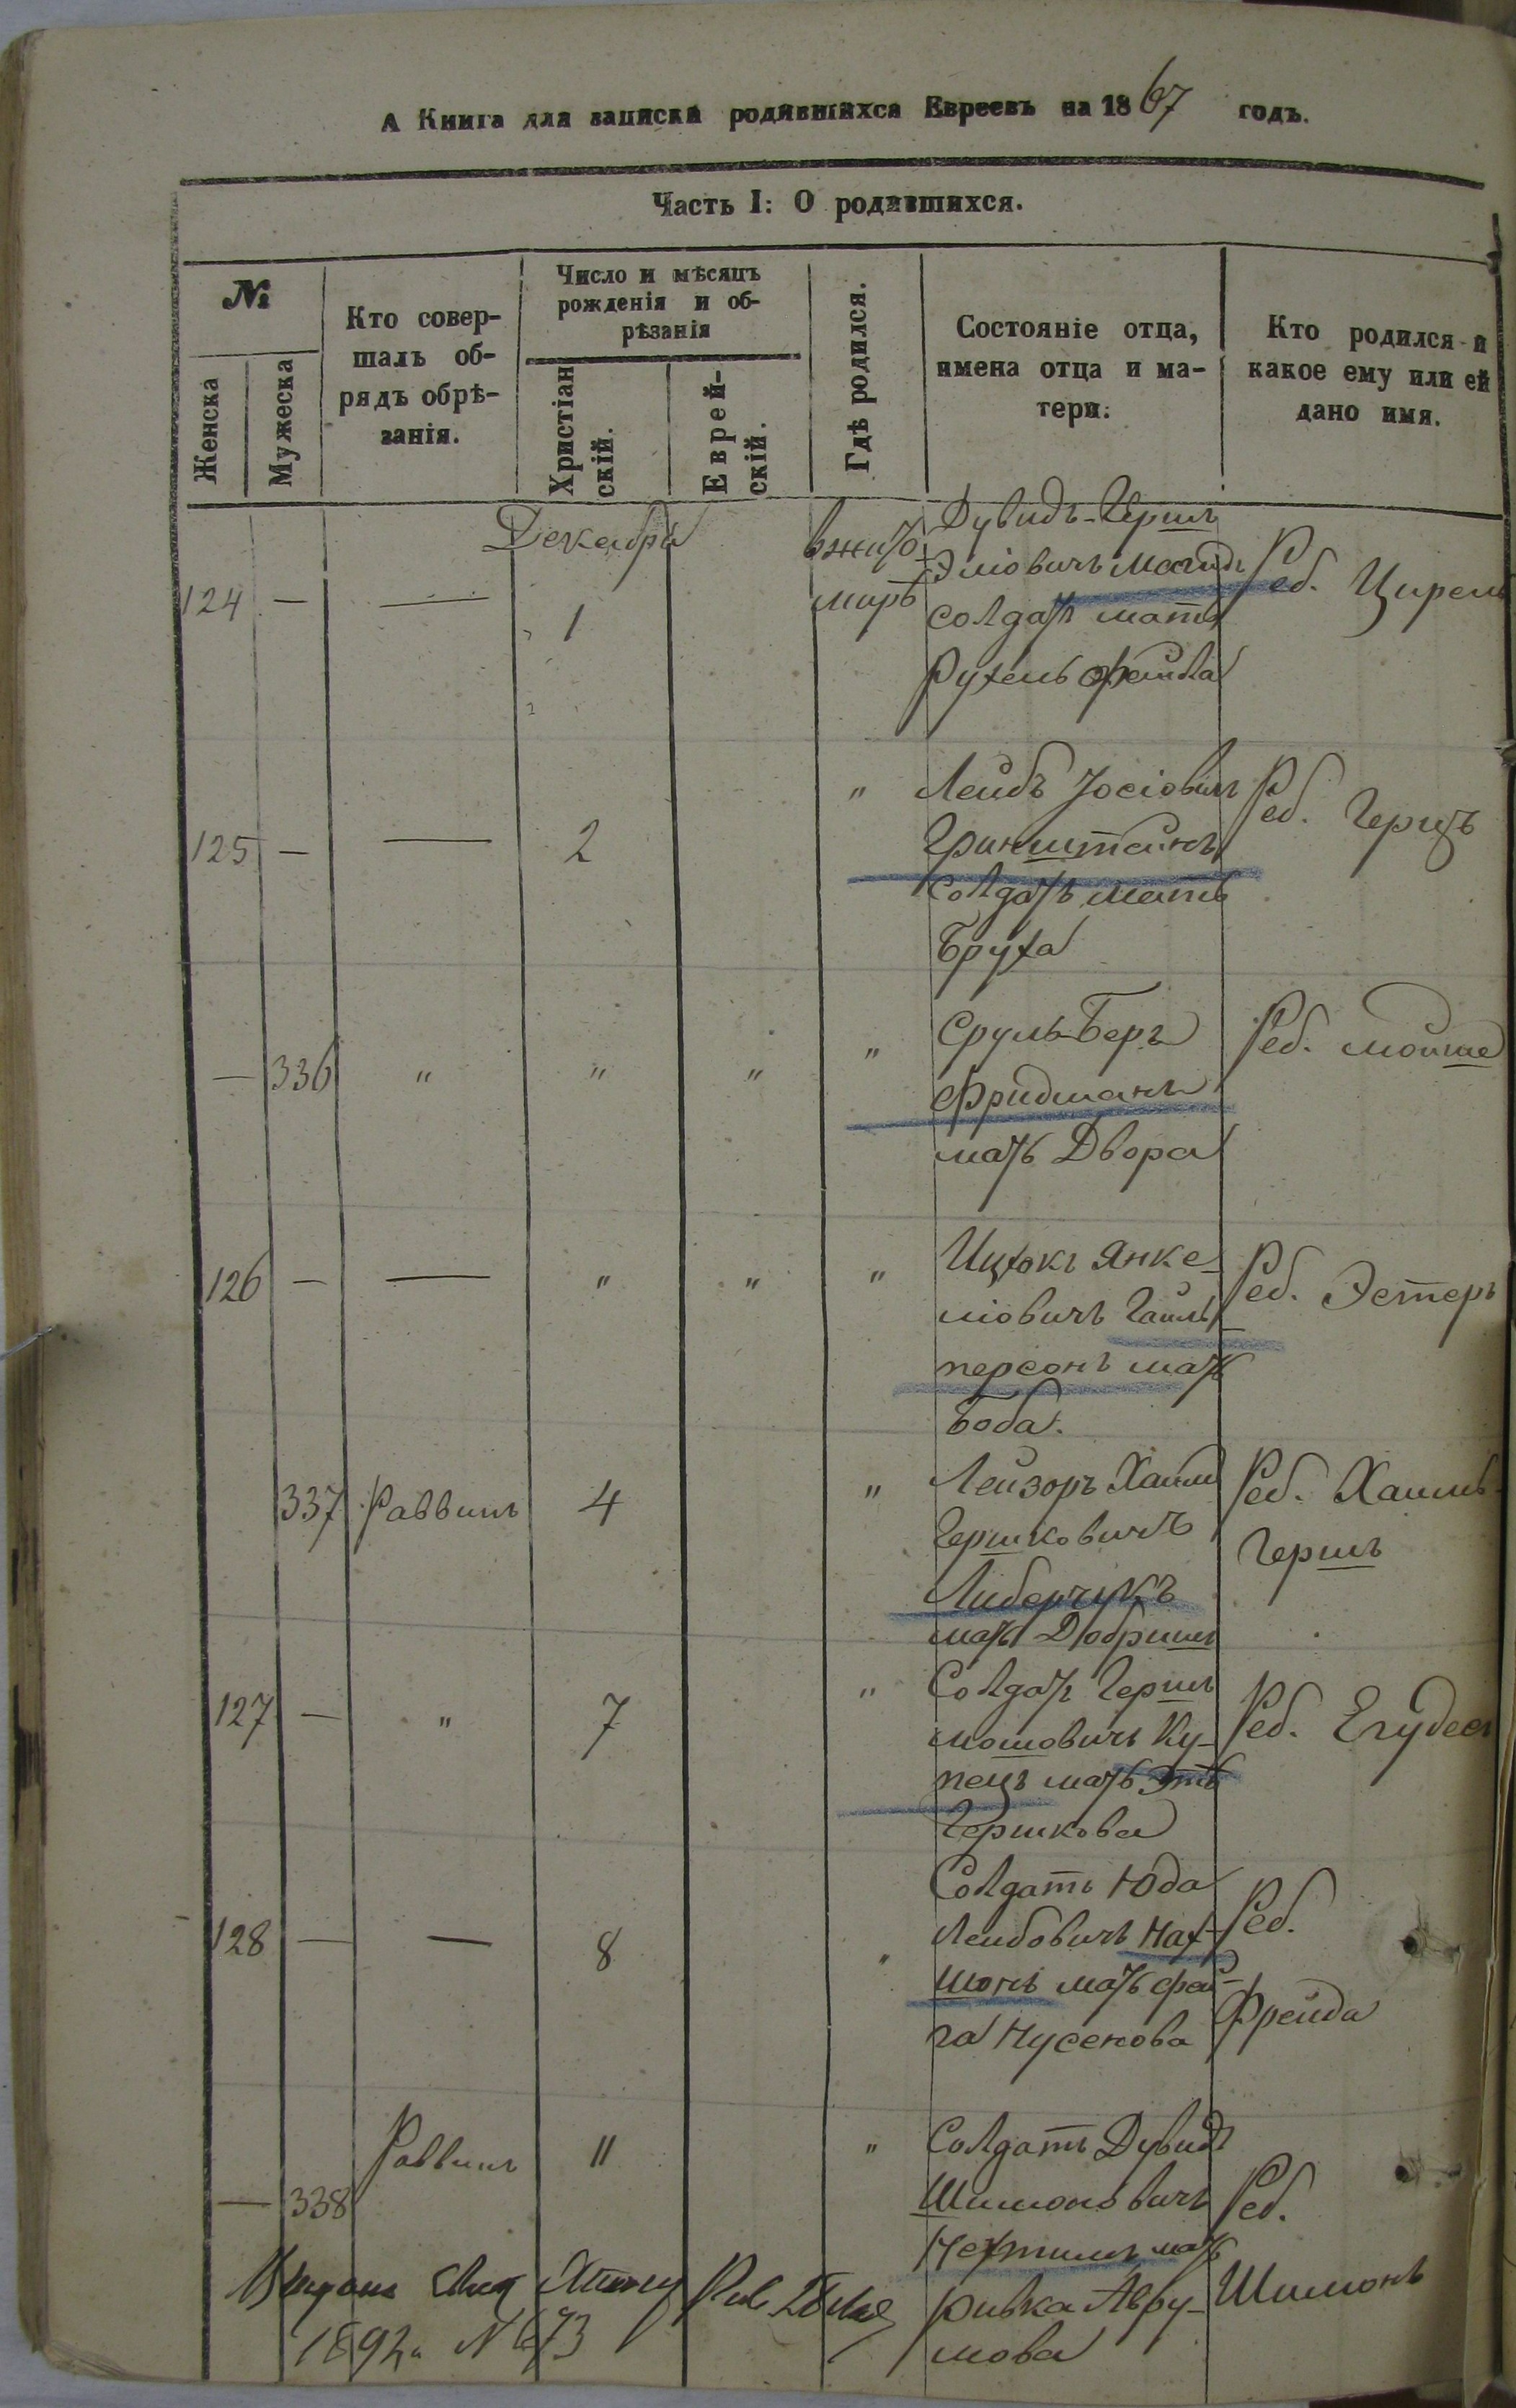 А Книга для записки родившихся Евреевъ на 1867 годъ.
Часть I: О родившихся.
№
Женска
Мужеска
Кто совер-
шалъ об-
рядъ обрѣ-
занія.
Число и мѣсяцъ
рожденія и об-
рѣзанія
Христіан
скій.
Еврей-
скій.
Гдѣ родился.
Состояніе отца,
имена отца и ма-
тери.
Кто родился и
какое ему или ей
дано имя.
Декабря
124 — — 1
в жито
мирѣ
Дувидъ-Гершъ
Эліовичъ
солдатъ мать
Рухель
Реб. Цирель
125 — — 2 „
Лейбъ Іосіовичъ
Гринштейнъ
Солдатъ мать
Бруха
Реб. Герцъ
— 336 „ „ „ „
Сруль-Беръ
Фридманъ
мать Двора
Реб. мойше
126 — — „ „ „
Ицхокъ Янке-
ліовичъ Гайль-
персонъ мать
Боба.
Реб. Эстеръ
337 Раввинъ 4 „
Лейзоръ Хаим
Гершковичъ
Либерчукъ
мать Добришъ
Реб. Хаимъ-
Гершъ
127 — „ 7 „
Солдатъ Гершъ
мошовичъ Ку-
пецъ мать
Гершкова
Реб. Егудесъ
128 — — 8 „
Солдатъ Юда
Лейбовичъ Нах-
шонъ мать фей-
га Нусенова
Реб.
Фрейда
— 338 Раввинъ 11 „
Солдатъ Дувидъ
Шимоновичъ
мать
Ривка Авру-
мова
Реб.
Шимонъ
1892 г. N 673